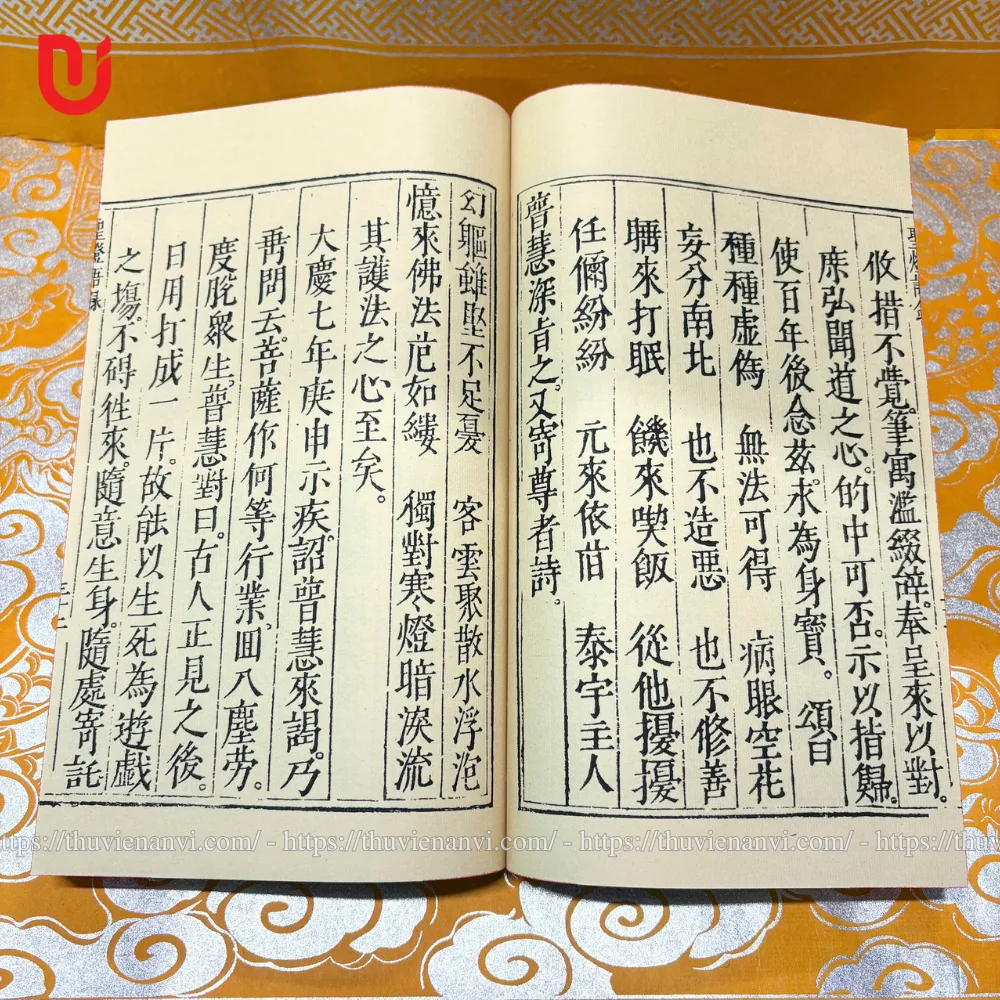 攸措不覺筆寓濫綴辞。奉呈來以對。
庶弘聞道之心。的中可否。示以指歸。
使百年後念茲。求為身寶。頌曰
種種虛偽 無法可得 病眼空花
妄分南北 也不造惡 也不修善
睏來打眠 饑來喫飯 從他擾擾
任儞紛紛 元來依旧 泰宇主人
普慧深旨之。又寄尊者詩。
幻軀雖堅不足憂 客雲聚散水浮泡
憶來佛法危如縷 獨對寒燈暗淚流
其護法之心至矣。
大慶七年庚申示疾。詔普慧來謁。乃
再問云。菩薩作何等行業。回八塵勞。
度脫眾生。普慧對曰。古人正見之後。
日用打成一片。故能以生死為遊戲
之塲。不碍徃來。隨意生身。隨處寄託
聖燈語錄
https://thuvienanvi.com/ - https://thuvienanvi.com/ - https://thuvienanvi.com/